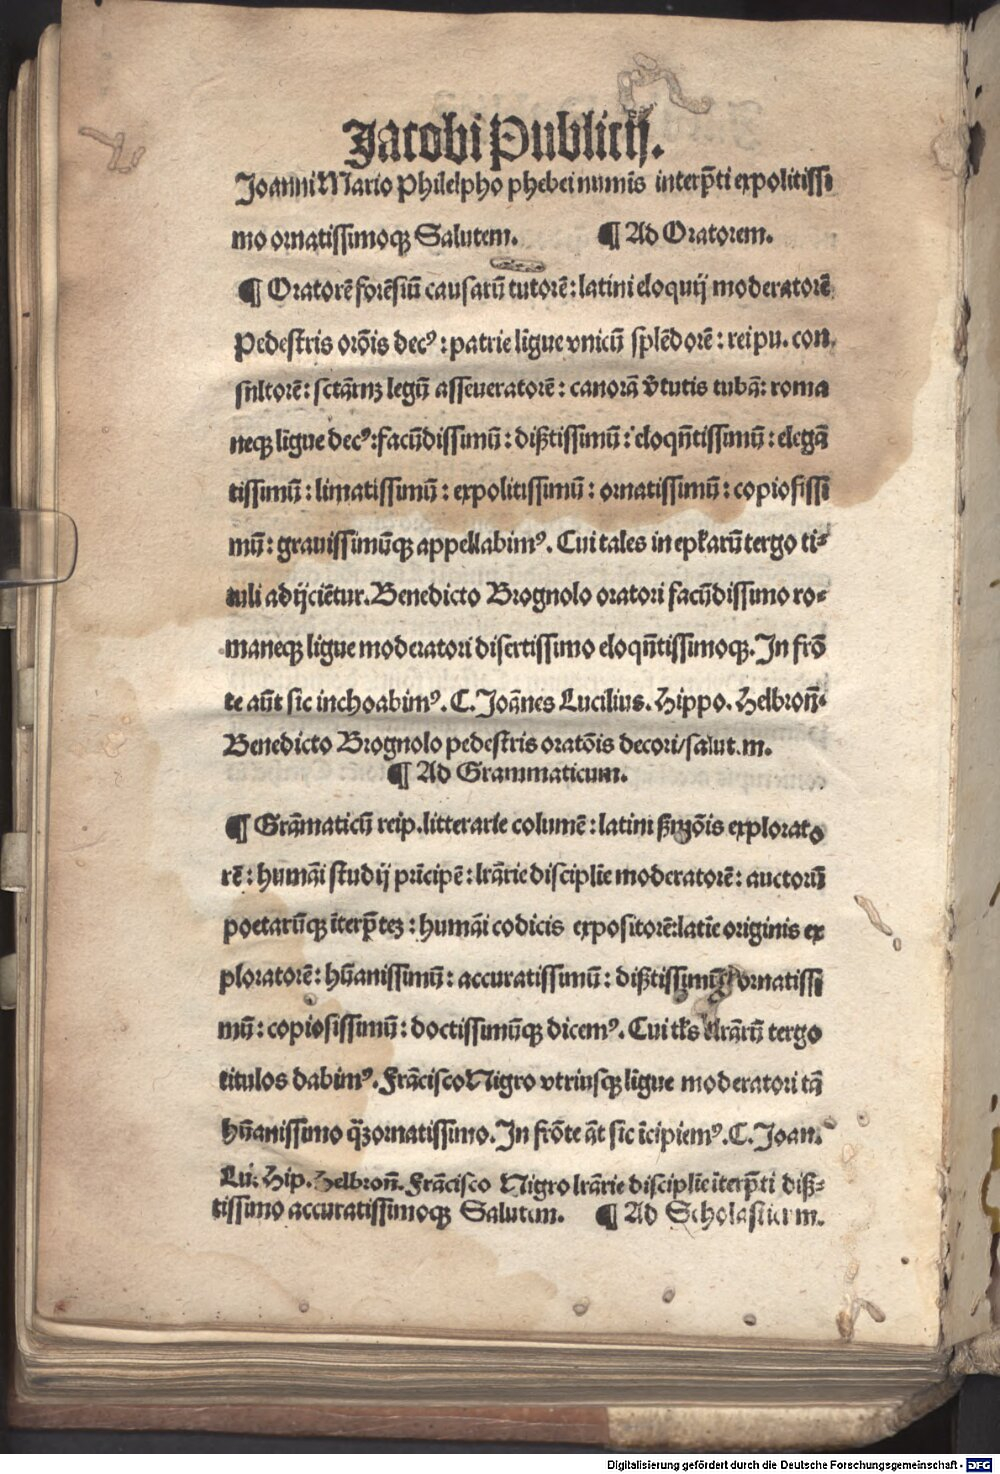 Jacobi Publicij.
Joanni Mario Philelpho phebei numīs interp̄ti expolitissi
mo ornatissimoqꝫ Salutem. ¶ Ad Oratorem.
¶ Oratorē forēsiū causarū tutorē: latini eloquij moderatorē
Pedestris orōis decꝰ: patrie līgue vnicū splēdorē: reipu. con
sultorē: legū asseueratorē: canorā v̄tutis tubā: roma
neqꝫ līgue decꝰ: facūdissimū: dißtissimū: eloqn̄tissimū: elegā
tissimū: limatissimū: expolitissimū: ornatissimū: copiosissi
mū: grauissimūqꝫ appellabimꝰ. Cui tales in epl̄arū tergo ti⸗
tuli adijciētur. Benedicto Brognolo oratori facūdissimo ro⸗
maneqꝫ ligue moderatori disertissimo eloqn̄tissimoqꝫ. In frō
te aūt sic inchoabimꝰ. C. Joānes Lucilius. Hippo. Helbron̄.
Benedicto Brognolo pedestris oratōis decori/ salutem.
¶ Ad Grammaticum.
¶ Grāmaticū reip. litterarie columē: latini ßmōis explorato
rē: humāi studij prīcipē: lrārie discipline moderatorē: auctorū
poetarūqꝫ īterp̄teꝫ: humāi codicis expositorē: latīe originis ex
ploratorē: hūanissimū: accuratissimū: dißtissimū: ornatissi
mū: copiosissimū: doctissimūqꝫ dicemꝰ. Cui tl̄s lrārū tergo
titulos dabimꝰ. Frācisco Nigro vtriusqꝫ līgue moderatori tā
hūanissimo qꝫ̄ ornatissimo. In frōte āt sic īcipiemꝰ. C. Joan.
Lu. Hip. Helbron̄. Frācisco Nigro lrārie disciplīe īterp̄ti diß⸗
tissimo accuratissimoqꝫ Salutem. ¶ Ad Scholasticum.
Digitalisierung gefördert durch die Deutsche Forschungsgemeinschaft - DFG